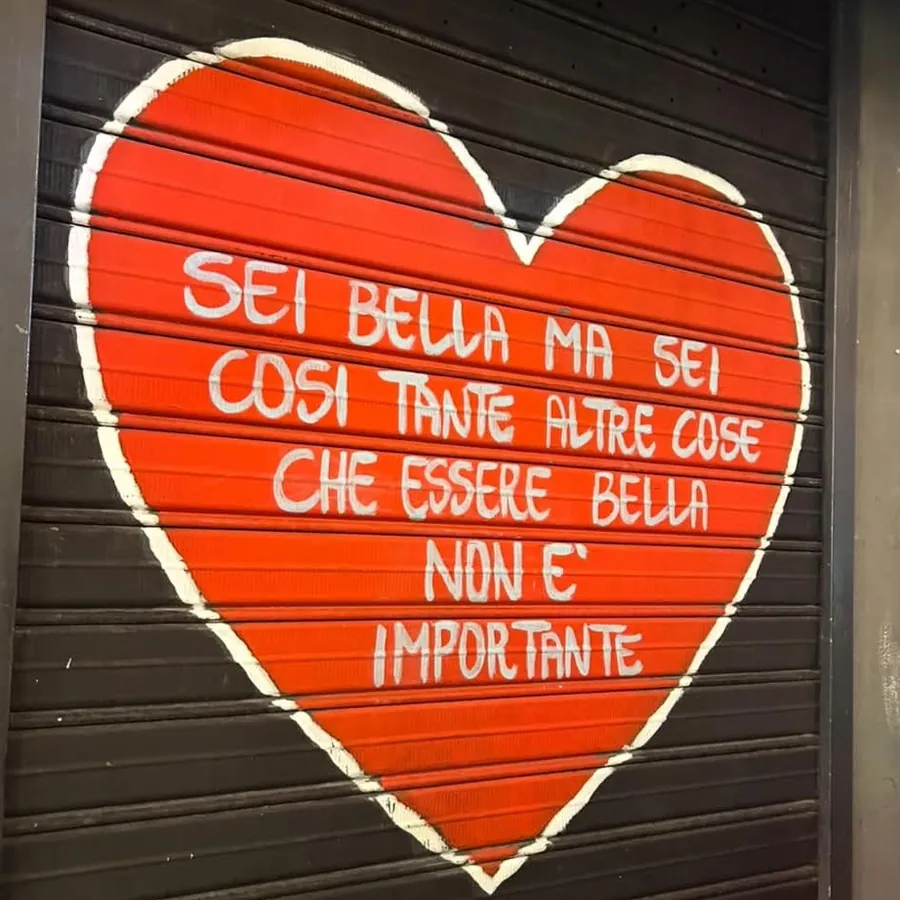 SEI BELLA MA SEI
COSI TANTE ALTRE COSE
CHE ESSERE BELLA
NON E'
IMPORTANTE